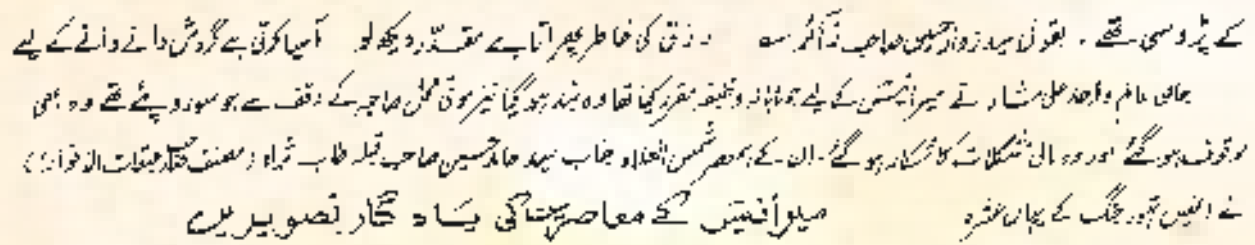 کے پڑوسی تھے ۔ بقول سید زوار حسین صاحب ذاکر ؎ رزق کی خاطر پھراتا ہے مقدر دیکھ لو آسیا کرتی ہے گردش دانے دانے کے لیے
جان عالم واجد علی شاہ نے میر انیس کے لیے جو ماہانہ وظیفہ مقرر کیا تھا وہ بند ہو گیا نیز محل صاحبہ کے وقف سے جو سو روپئے تھے وہ بھی
موقوف ہو گئے اور وہ مالی مشکلات کا شکار ہو گئے۔ ان کے ہمعصر شمس العلماء جناب سید حامد حسین صاحب قبلہ طاب ثراہ (مصنف عبقات الانوار)
نے انھیں تہور جنگ کے یہاں عشرہ میر انیس کے معاصرین کی یادگار تصویریں